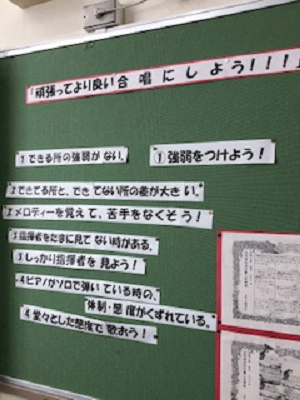 「頑張ってより良い合唱にしよう!!!」
1 できる所の強弱がない。
① 強弱をつけよう!
2 できてる所と、できてない所の差が大きい。
2 メロディーを覚えて、苦手をなくそう!
3 指揮者をたまに見てない時がある。
3 しっかり指揮者を見よう!
4 ピアノがソロで弾いている時の、
体制・態度がくずれている。
4 堂々とした態度で歌おう!